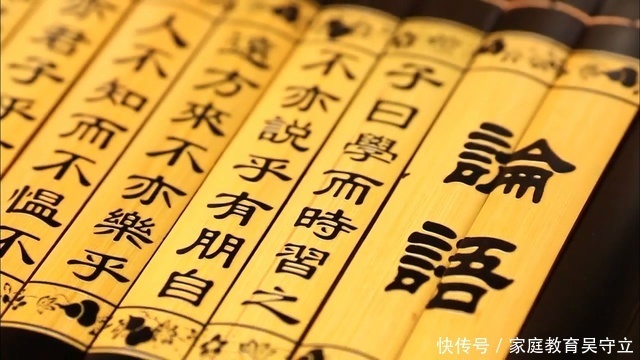 論語
子曰學而時習之
不亦說乎有朋自
遠方來不亦樂乎
人不知而不愠不
亦君子乎
快传号 / 家庭教育吴守立